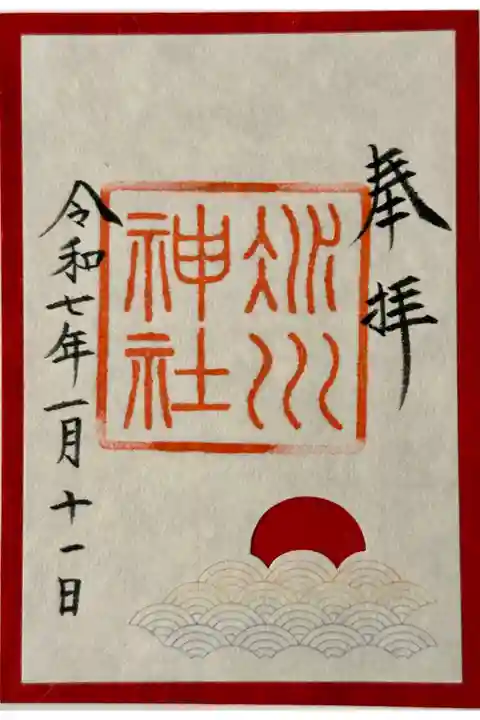 奉拝
冰川
神社
令和七年一月十一日